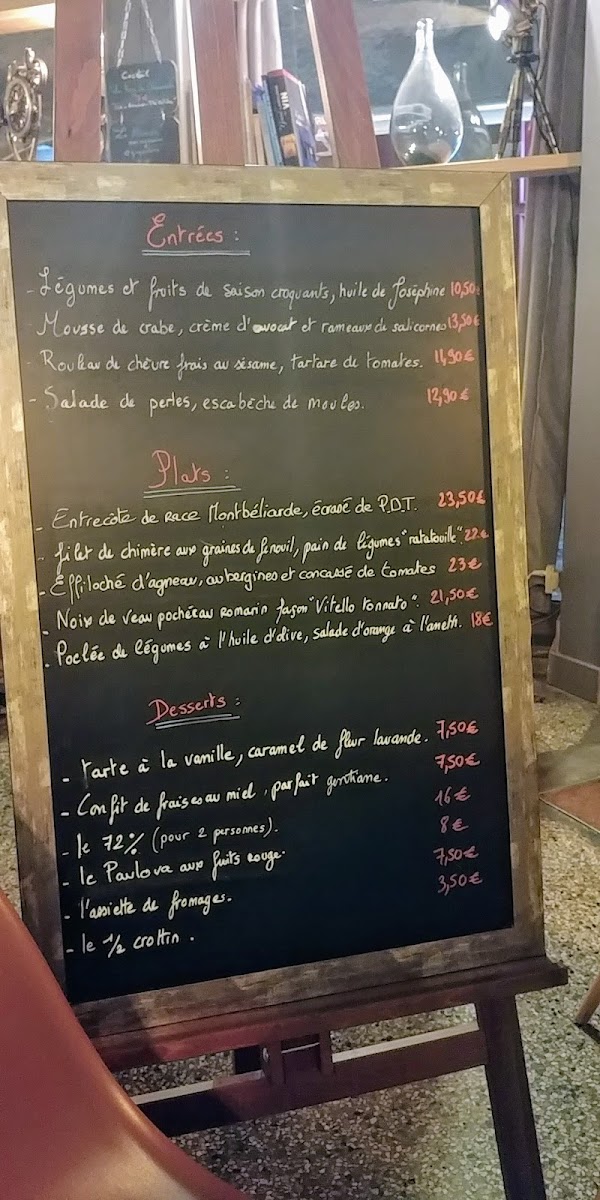 Cocktail
NIA
Entrées :
- Légumes et fruits de saison croquants, huile de Joséphine 10,50€
- Mousse de crabe, crème d'avocat et rameaux de salicornes 13,50€
- Rouleau de chèvre frais au sésame, tartare de tomates. 11,90€
- Salade de perles, escabèche de moules. 12,90€
Plats :
- Entrecôte de race Montbéliarde, écrasé de P.D.T. 23,50€
- filet de chimère aux graines de fenouil, pain de légumes "ratatouille" 22€
- Effiloché d'agneau, aubergines et concassé de tomates 23€
- Noix de veau poché au romarin façon "Vitello tonnato". 21,50€
- Poêlée de légumes à l'huile d'olive, salade d'orange à l'aneth. 18€
Desserts :
- tarte à la vanille, caramel de fleur lavande. 7,50€
- Confit de fraises au miel, parfait gentiane. 7,50€
- le 72% (pour 2 personnes). 16€
- le Pavlova aux fruits rouge. 8€
- l'assiette de fromages. 7,50€
- le 1/2 crottin. 3,50€